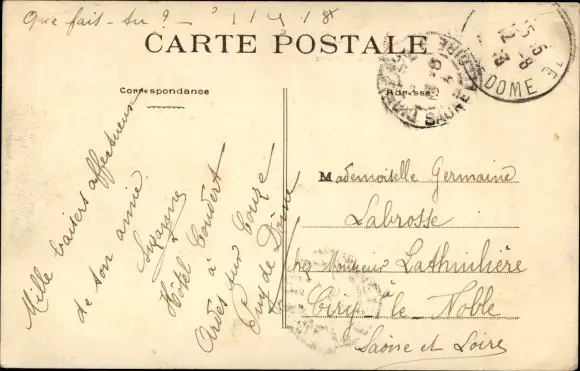 Que fait-tu ? -
CARTE POSTALE
Correspondance
Adresse
DOME
Mille baisers affectueux
de ton amie
Suzanne
Hôtel Coudert
à
Ardes sur Couze
Puy de Dôme
Mademoiselle Germaine
Labrosse
chez Monsieur Lathuilière
à
Ciry-le-Noble
Saône et Loire